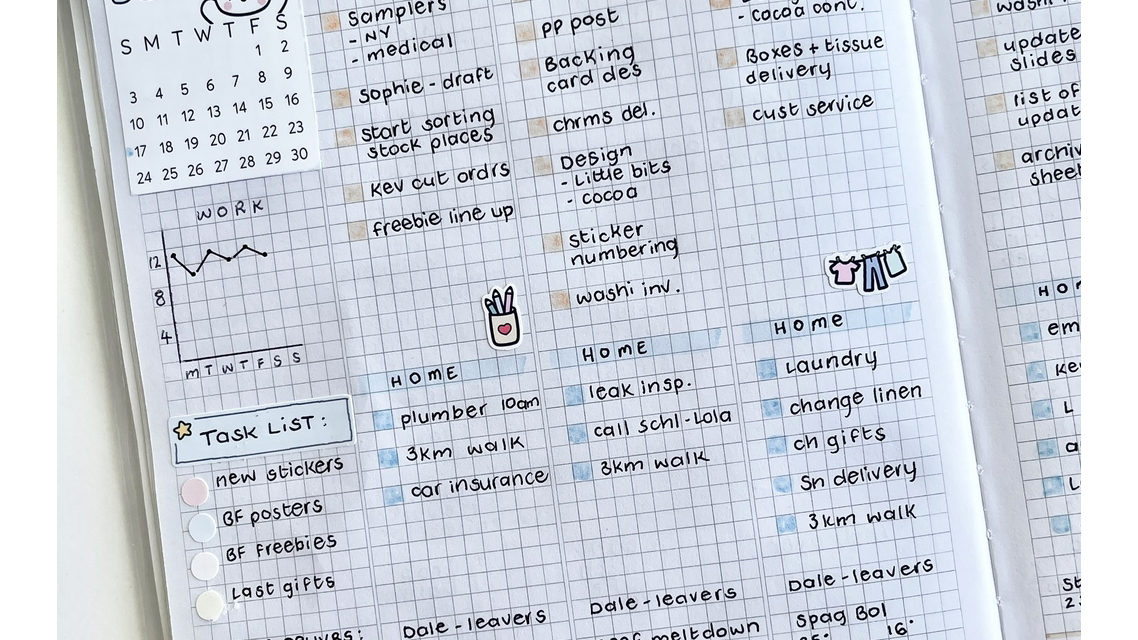 S M T W T F S
1 2
3 4 5 6 7 8 9
10 11 12 13 14 15 16
17 18 19 20 21 22 23
24 25 26 27 28 29 30
WORK
12
8
4
M T W T F S S
TASK LIST:
new stickers
BF posters
BF freebies
Last gifts
Samplers
- NY
- medical
Sophie - draft
start sorting
stock places
Kev cut ordrs
freebie line up
HOME
plumber 10am
3km walk
car insurance
Dale-leavers
PP post
Backing
card des
chrms del.
Design
- Little bits
- cocoa
sticker
numbering
washi inv.
HOME
leak insp.
call schl-Lola
3km walk
Dale-leavers
meltdown
- cocoa cont.
Boxes + tissue
delivery
cust service
HOME
Laundry
change linen
ch gifts
Sn delivery
3km walk
Dale-leavers
Spag Bol
16·
update
slides
list of